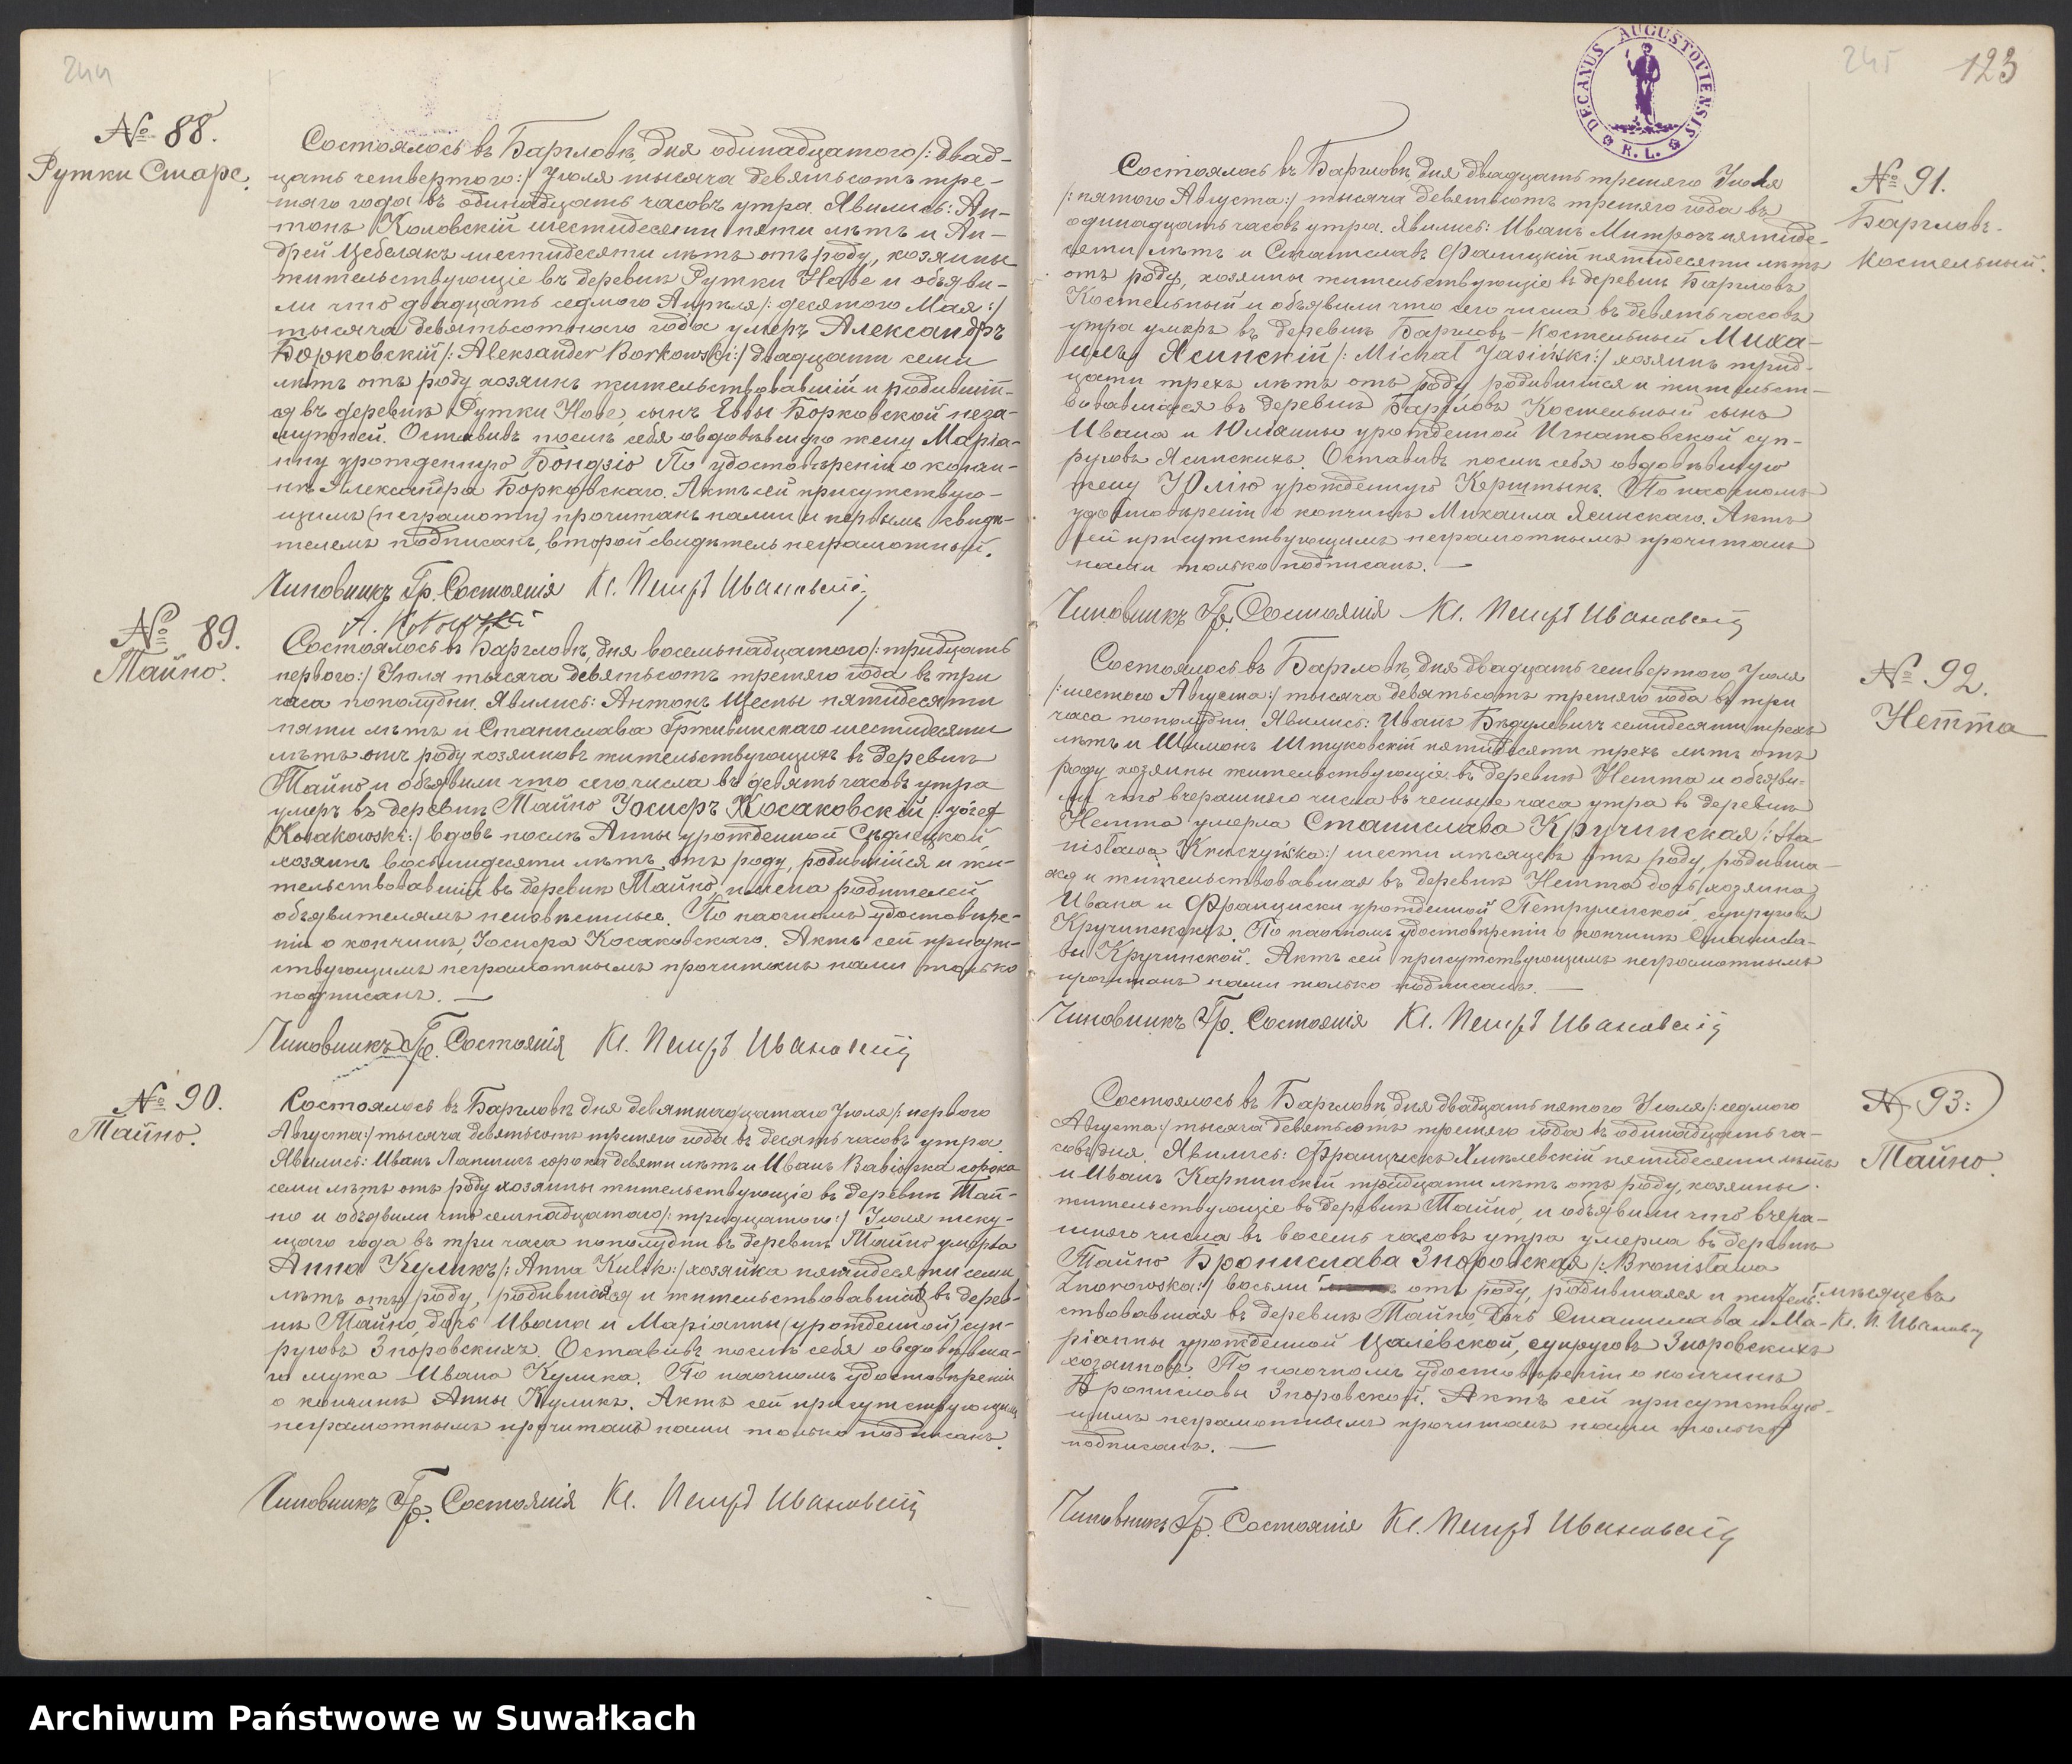 244
№ 88.
Рутки Старе.
Состоялось въ Баргловѣ, дня одинадцатаго /: двад-
цать четвертого :/ Іюля тысяча девятьсотъ тре-
тяго года въ одинадцать часовъ утра. Явились: Ан-
тонъ Коловскій шестидесяти пяти лѣтъ и Ан-
дрей Цебелякъ шестидесяти лѣтъ отъ роду, хозяины
жительствующіе въ деревнѣ Рутки Нове и объяви-
ли что двадцать седмого Апрѣля /: десятого Мая :/
тысяча девятьсотнаго года умеръ Александръ
Борковскій /: Aleksander Borkowski :/ двадцати семи
лѣтъ отъ роду хозяинъ жительствовавшій и родившій-
ся въ деревнѣ Рутки Нове, сынъ Евы Борковской неза-
мужней. Оставивъ послѣ себя овдовѣвшую жену Марiа-
нну урожденную Бондзіо По удостовѣреніи о кончи-
нѣ Александра Борковскаго. Актъ сей присутствую-
щимъ (неграмотн) прочитанъ нами и первымъ свидѣ-
телемъ подписанъ, второй свидѣтель неграмотный.
Чиновникъ Гр. Состоянія Кс. Петръ Ивановскій
№ 89.
Тайно.
Состоялось въ Баргловѣ, дня восемьнадцатого /: тридцать
первого :/ Іюля тысяча девятьсотъ третяго года въ три
часа пополудни. Явились: Антонъ Щесны пятидесяти
пяти лѣтъ и Станислава Грживинскаго шестидесяти
лѣтъ отъ роду хозяиновъ жительствующихъ въ деревнѣ
Тайно и объявили что сего числа въ девять часовъ утра
умеръ въ деревнѣ Тайно Іосифъ Косаковскій /: Józef
Kosakowski :/ вдовъ послѣ Анны урожденной Сѣдлецкой,
хозяинъ восьмидесяти лѣтъ отъ роду, родившійся и жи-
тельствовавшій въ деревнѣ Тайно, имена родителей
объявителямъ неизвѣстные. По наочномъ удостовѣре-
ніи о кончинѣ Іосифа Косаковскаго. Актъ сей присут-
ствующимъ неграмотнымъ прочитанъ нами только
подписанъ. —
Чиновникъ Гр. Состоянія Кс. Петръ Ивановскій
№ 90.
Тайно.
Состоялось въ Баргловѣ дня девятнадцатаго Іюля /: первого
Августа :/ тысяча девятьсотъ третяго года въ десять часовъ утра.
Явились: Иванъ Лапинъ сорока девяти лѣтъ и Иванъ Вавіорка сорока
семи лѣтъ отъ роду хозяины жительствующіе въ деревнѣ Тай-
но и объявили что семнадцатаго /: тридцатого :/ Іюля теку-
щаго года въ три часа пополудни въ деревнѣ Тайно умерла
Анна Куликъ /: Anna Kulik :/ хозяйка пятидесяти семи
лѣтъ отъ роду, родившаяся и жительствовавшая въ дерев-
нѣ Тайно, дочь Ивана и Маріанны (урожденной) суп-
руговъ Зноровскихъ. Оставивъ послѣ себя овдовѣвша-
го мужа Ивана Кулика. По наочномъ удостовѣреніи
о кончинѣ Анны Куликъ. Актъ сей присутствующимъ
неграмотнымъ прочитанъ нами только подписанъ.
Чиновникъ Гр. Состоянія Кс. Петръ Ивановскій
DECANUS AUGUSTOVIENSIS R. L.
245
123
№ 91.
Баргловъ-
Костельный.
Состоялось въ Баргловѣ дня двадцать третяго Іюля
/: пятого Августа :/ тысяча девятьсотъ третяго года въ
одинадцать часовъ утра. Явились: Иванъ Митрозъ пятиде-
сяти лѣтъ и Станиславъ Фалицкій пятидесяти лѣтъ
отъ роду, хозяины жительствующіе въ деревнѣ Баргловъ
Костельный и объявили что сего числа въ девять часовъ
утра умеръ въ деревнѣ Баргловъ-Костельный Миха-
илъ Ясинскій /: Michał Jasiński :/ хозяинъ трид-
цати трехъ лѣтъ отъ роду родившійся и жительст-
вовавшійся въ деревнѣ Баргловъ Костельный сынъ
Ивана и Юліанны урожденной Игнатовской суп-
руговъ Ясинскихъ. Оставивъ послѣ себя овдовѣвшую
жену Юлію урожденную Керштынъ. По наочномъ
удостовѣреніи о кончинѣ Михаила Ясинскаго. Актъ
сей присутствующимъ неграмотнымъ прочитанъ
нами только подписанъ. —
Чиновникъ Гр. Состоянія Кс. Петръ Ивановскій
№ 92.
Нетта
Состоялось въ Баргловѣ, дня двадцать четвертого Іюля
/: шестого Августа :/ тысяча девятьсотъ третяго года въ три
часа пополудни. Явились: Иванъ Бѣдулевичъ семидесяти трехъ
лѣтъ и Шимонъ Штуковскій пятидесяти трехъ лѣтъ отъ
роду хозяины жительствующіе въ деревнѣ Нетта и объяви-
ли что вчерашняго числа въ четыре часа утра въ деревнѣ
Нетта умерла Станислава Кручинская /: Sta-
nisława Kruczyńska :/ шести мѣсяцевъ отъ роду, родивша-
яся и жительствовавшая въ деревнѣ Нетта дочь хозяина
Ивана и Францишки урожденной Петрулинской, супруговъ
Кручинскихъ. По наочномъ удостовѣреніи о кончинѣ Станисла-
вы Кручинской. Актъ сей присутствующимъ неграмотнымъ
прочитанъ нами только подписанъ. —
Чиновникъ Гр. Состоянія Кс. Петръ Ивановскій
№ 93:
Тайно.
Состоялось въ Баргловѣ, дня двадцать пятого Іюля /: седмого
Августа :/ тысяча девятьсотъ третяго года въ одинадцать ча-
совъ дня. Явились: Францискъ Хмѣлевскій пятидесяти лѣтъ
и Иванъ Карпинскій тридцати лѣтъ отъ роду, хозяины
жительствующіе въ деревнѣ Тайно, и объявили что вчера-
шнего числа въ восемь часовъ утра умерла въ деревнѣ
Тайно Бронислава Зноровская /: Bronisława
Znorowska :/ восьми отъ роду, родившаяся и житель-
мѣсяцевъ
Кс. П. Ивановскій
ствовавшая въ деревнѣ Тайно, дочь Станислава и Ма-
ріанны урожденной Цалевской, супруговъ Зноровскихъ
хозяиновъ. По наочномъ удостовѣреніи о кончинѣ
Брониславы Зноровской. Актъ сей присутствую-
щимъ неграмотнымъ прочитанъ нами только
подписанъ. —
Чиновникъ Гр. Состоянія Кс. Петръ Ивановскій
Archiwum Państwowe w Suwałkach